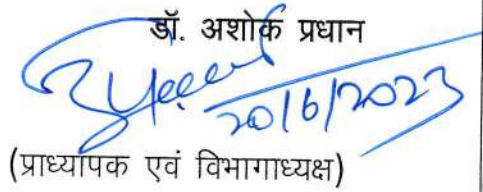 डॉ. अशोक प्रधान
20/6/2023
(प्राध्यापक एवं विभागाध्यक्ष)